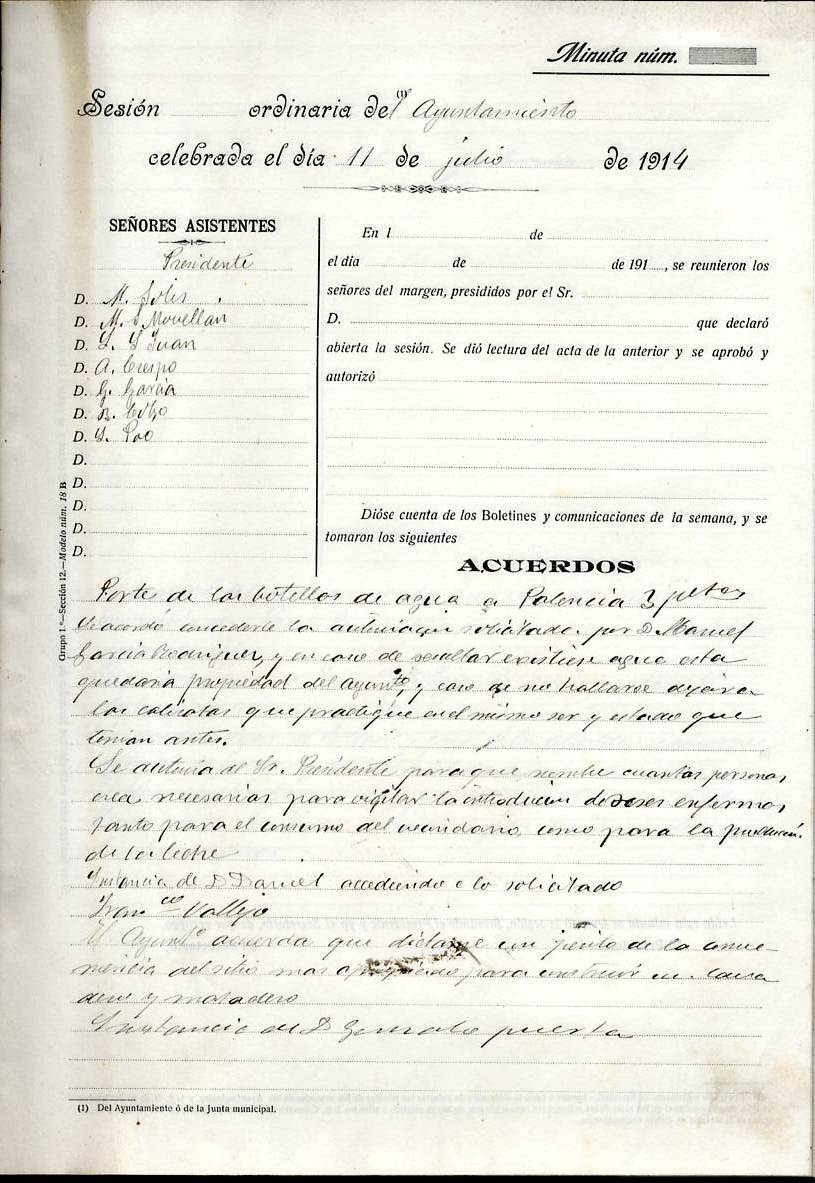 Minuta núm.
Sesión ordinaria del (1) Ayuntamiento
celebrada el día 11 de julio de 1914
SEÑORES ASISTENTES
Presidente
D. M. Solis
D. M. S Movellan
D. L. S Juan
D. A. Crespo
D. G. Garcia
D. B. Cobo
D. S. Poo
D.
D.
D.
D.
D.
En l de
el día de de 191 , se reunieron los
señores del margen, presididos por el Sr.
D. que declaró
abierta la sesión. Se dió lectura del acta de la anterior y se aprobó y
autorizó
Dióse cuenta de los Boletines y comunicaciones de la semana, y se
tomaron los siguientes
ACUERDOS
Porte de las botellas de agua a Palencia 3 petas
Se acordó concederle la solicitada por D. Manuel
Garcia Rodriguez, y en caso de resultar existiese agua esta
quedaria propiedad del ayunto, y caso de no hallarse dejara
las calicatas que practique en el mismo ser y estado que
tenian antes.
Se autoriza al Sr. Presidente para que nombre cuantas personas
crea necesarias para vigilar la introducion de reses enfermas
tanto para el consumo del vecindario, como para la
de la leche
Instancia de D Daniel accediendo a lo solicitado
Franco Vallejo
El Ayunto acuerda que dictamine un perito de la conve-
niencia del sitio mas apropiado para construir un
y matadero
Instancia de D Gonzalo puerta
(1) Del Ayuntamiento ó de la Junta municipal.
Grupo 1.º—Sección 12.—Modelo núm. 18 B